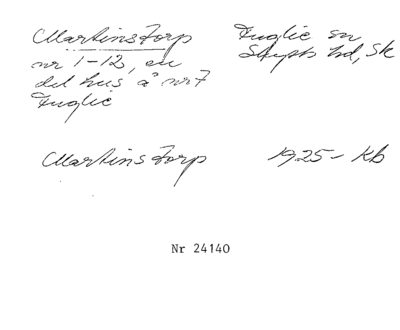 Martinstorp
nr 1-12, en
del hus å nr 7
Fuglie
Fuglie sn
Skytts hd, Sk
Martinstorp
1925- Kb
Nr 24140